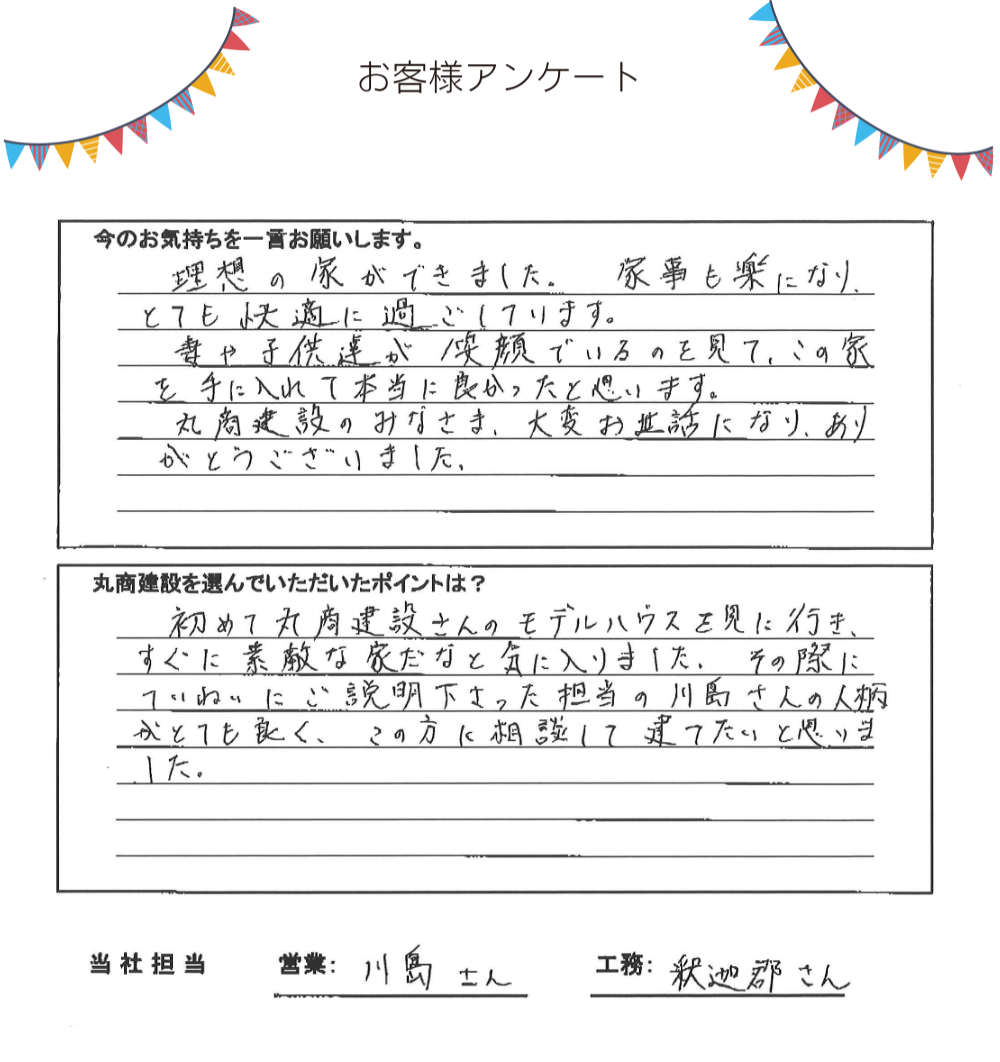 お客様アンケート
今のお気持ちを一言お願いします。
理想の家ができました。 家事も楽になり、
とても快適に過ごしています。
妻や子供達が笑顔でいるのを見て、この家
を手に入れて本当に良かったと思います。
丸商建設のみなさま、大変お世話になり、あり
がとうございました。
丸商建設を選んでいただいたポイントは？
初めて丸商建設さんのモデルハウスを見に行き、
すぐに素敵な家だなと気に入りました。その際に
ていねいにご説明下さった担当の川島さんの人柄
がとても良く、この方に相談して建てたいと思いま
した。
当社担当 営業: 川島さん 工務: 釈迦郡さん